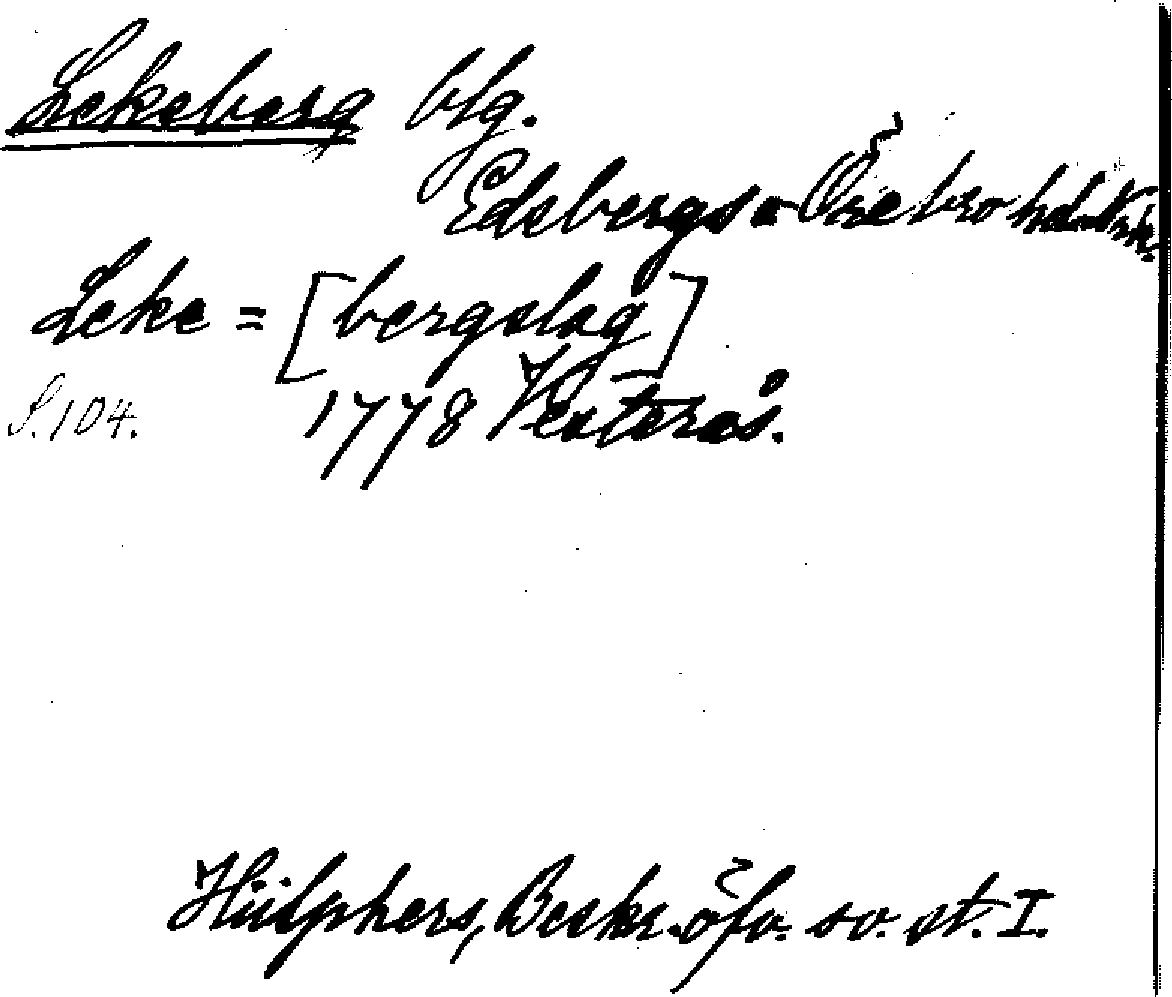 Lekeberg blg.
Edsbergs o Örebro hd. Nrk.
Leke = [bergslag]
S. 104. 1778 Vesterås.
Hülphers, Beskr. öfv. sv. st. I.